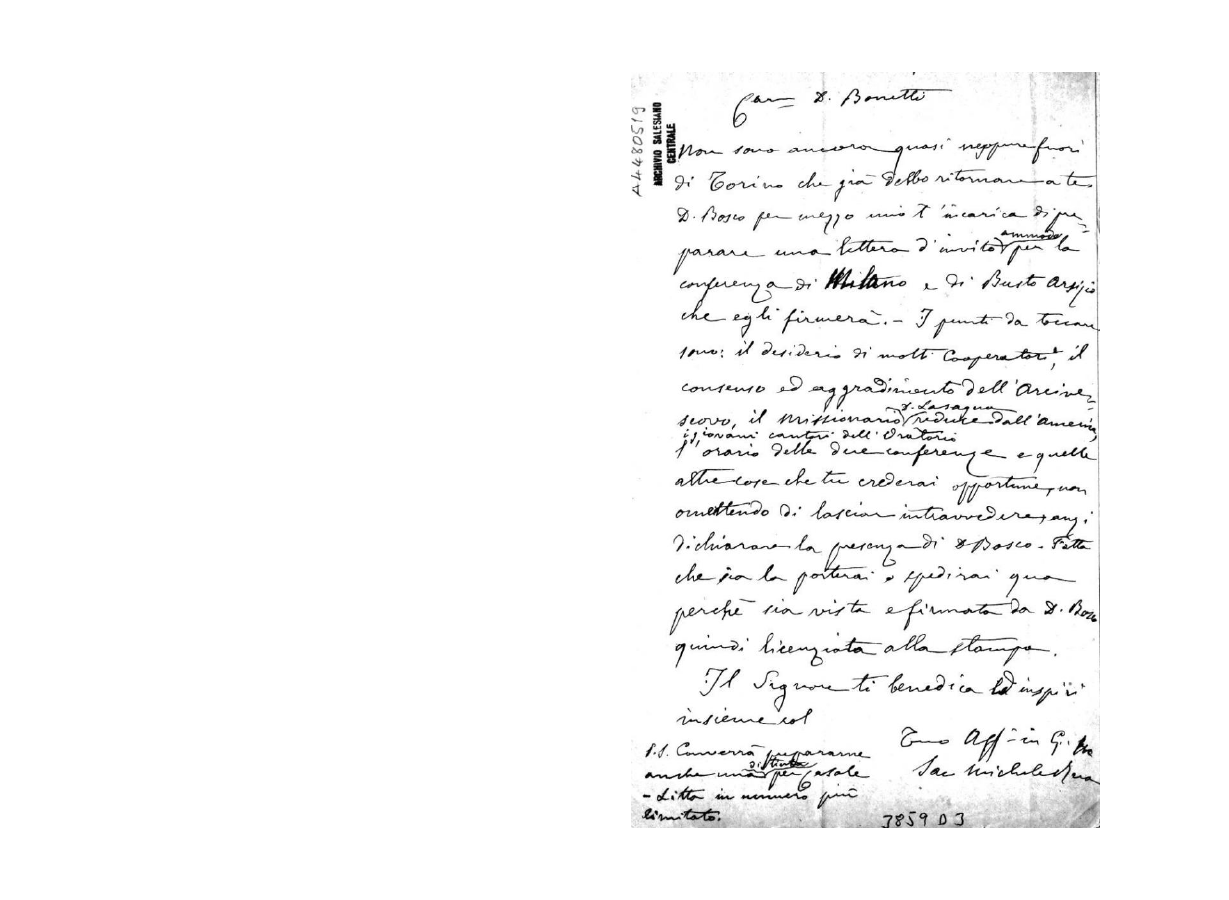 A4480519
ARCHIVIO SALESIANO
CENTRALE
Car D. Bonetti
Non sono ancora quasi neppure fuori
di Torino che già debbo ritornare a te.
D. Bosco per mezzo mio t'incarica di pre-
parare una lettera d'invito ammodo per la
conferenza di Milano e di Busto Arsizio
che egli firmerà. - I punti da toccare
sono: il desiderio di molti Cooperatori, il
consenso ed aggradimento dell'Arcive-
scovo, il Missionario D. Lasagna reduce dall'America,
i giovani cantori dell'Oratorio
l'orario delle due conferenze e quelle
altre cose che tu crederai opportune, non
omettendo di lasciar intravvedere, anzi
dichiarare la presenza di D Bosco - Fatta
che sia la porterai o spedirai qua
perchè sia vista e firmata da D. Bosco
quindi licenziata alla stampa.
Il Signore ti benedica ed inspiri
insieme col
Tuo Aff in G.
Sac Michele Rua
P.S. Converrà prepararne
anche una distinta per Casale
- Litta in numero più
limitato.
3859 D 3